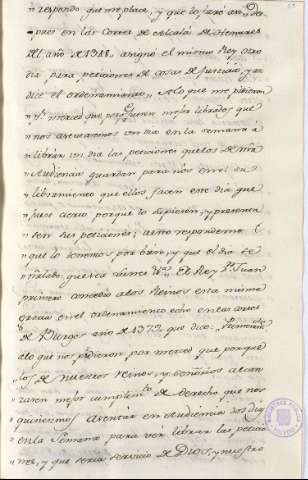 " respondo que me place, y que lo faré asi " Des
pues en las Cortes de Alcalá de Henares
del año de 1348. asignó el mismo Rey otro
dia para peticiones de cosas de Justicia, y asi
dice el ordenamiento " A lo que me pidieron
" por merced que porque fuesen mejor librados que
" nos asentaramos un dia en la semana á
" librar un dia las peticiones que los de ntra
" Audiencia guardan para nos en el su
" libramiento que ellos facen este dia que
" fuese cierto porque lo supiesen, y presenta
" sen sus peticiones; á esto respondemos
" que lo tenemos por bien, y que el dia se
" ñalado que sea Lunes El Rey Dn. Juan
primero concedio á los Reinos esta misma
gracia en el ordenamiento echo en las cortes
de Burgos año de 1379 que dice:
" á lo que nos pidieron por merced que porque
" los de nuestros Reinos, y Señorios alcan
" zasen mejor cumplimto. de derecho que nos
" quisiesemos asentar en Audiencia dos dias
" en la Semana para ver librar las peticio
" nes, y que seria servicio de Dios, y nuestro